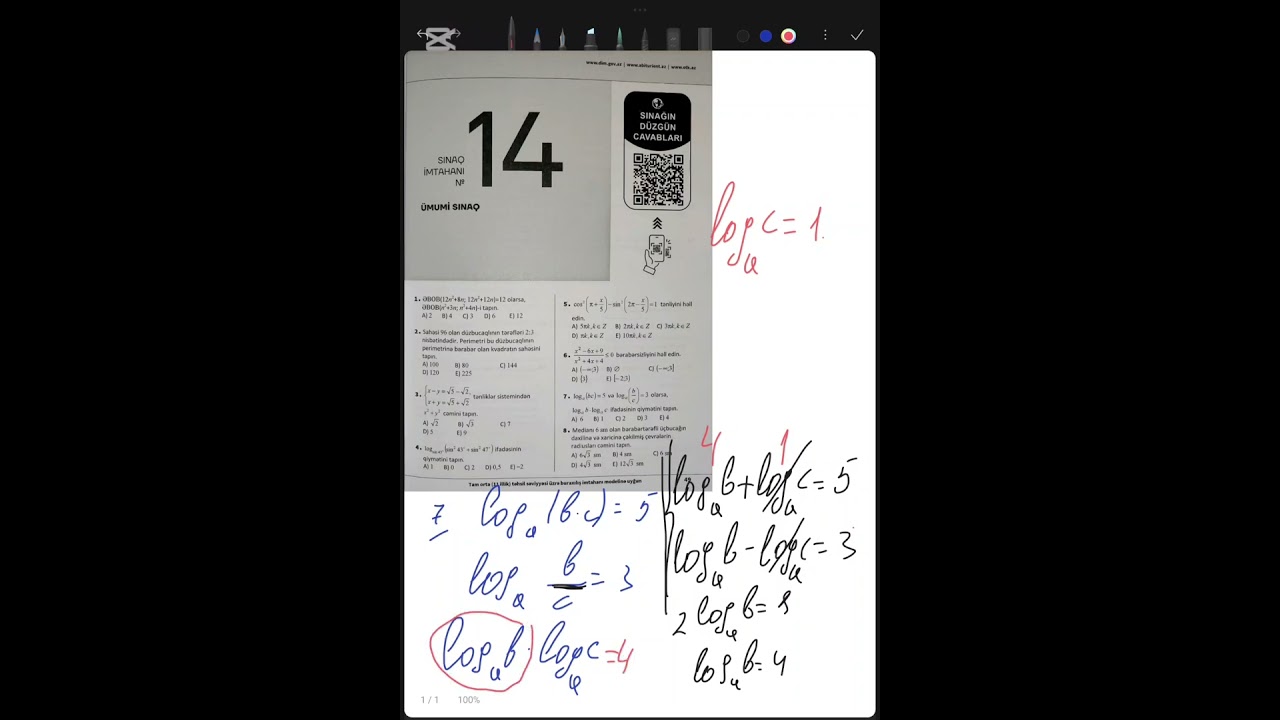 www.dim.gov.az | www.abiturient.az | www.etk.az
14
SINAQ
İMTAHANI
№
ÜMUMİ SINAQ
SINAĞIN
DÜZGÜN
CAVABLARI
1. ƏBOB(12n²+8n; 12n²+12n)=12 olarsa,
ƏBOB(n²+3n; n²+4n)-i tapın.
A) 2 B) 4 C) 3 D) 6 E) 12
2. Sahəsi 96 olan düzbucaqlının tərəfləri 2:3
nisbətindədir. Perimetri bu düzbucaqlının
perimetrinə bərabər olan kvadratın sahəsini
tapın.
A) 100 B) 80 C) 144
D) 120 E) 225
3. { x−y=√5−√2, x+y=√5+√2 tənliklər sistemindən
x²+y² cəmini tapın.
A) √2 B) √3 C) 7
D) 5 E) 9
4. (sin² 43°+sin² 47°) ifadəsinin
qiymətini tapın.
A) 1 B) 0 C) 2 D) 0,5 E) −2
5. cos²(π+x/5)−sin²(2π−x/5)=1 tənliyini həll
edin.
A) 5πk, k∈Z B) 2πk, k∈Z C) 3πk, k∈Z
D) πk, k∈Z E) 10πk, k∈Z
6. (x²−6x+9)/(x²+4x+4) ≤ 0 bərabərsizliyini həll edin.
A) (−∞;3) B) ∅ C) (−∞;3]
D) {3} E) [−2;3]
7. logₐ(bc)=5 və logₐ(b/c)=3 olarsa,
logₐ b · logₐ c ifadəsinin qiymətini tapın.
A) 6 B) 1 C) 2 D) 3 E) 4
8. Medianı 6 sm olan bərabərtərəfli üçbucağın
daxilinə və xaricinə çəkilmiş çevrələrin
radiusları cəmini tapın.
A) 6√3 sm B) 4 sm C) 6 sm
D) 4√3 sm E) 12√3 sm
Tam orta (11 illik) təhsil səviyyəsi üzrə buraxılış imtahanı modelinə uyğun
logₐ c = 1.
7 logₐ (b·c) = 5
logₐ b/c = 3
logₐ b · logₐ c = 4
4 1
logₐ b + logₐ c = 5
logₐ b − logₐ c = 3
2 logₐ b = 8
logₐ b = 4
1 / 1 100%